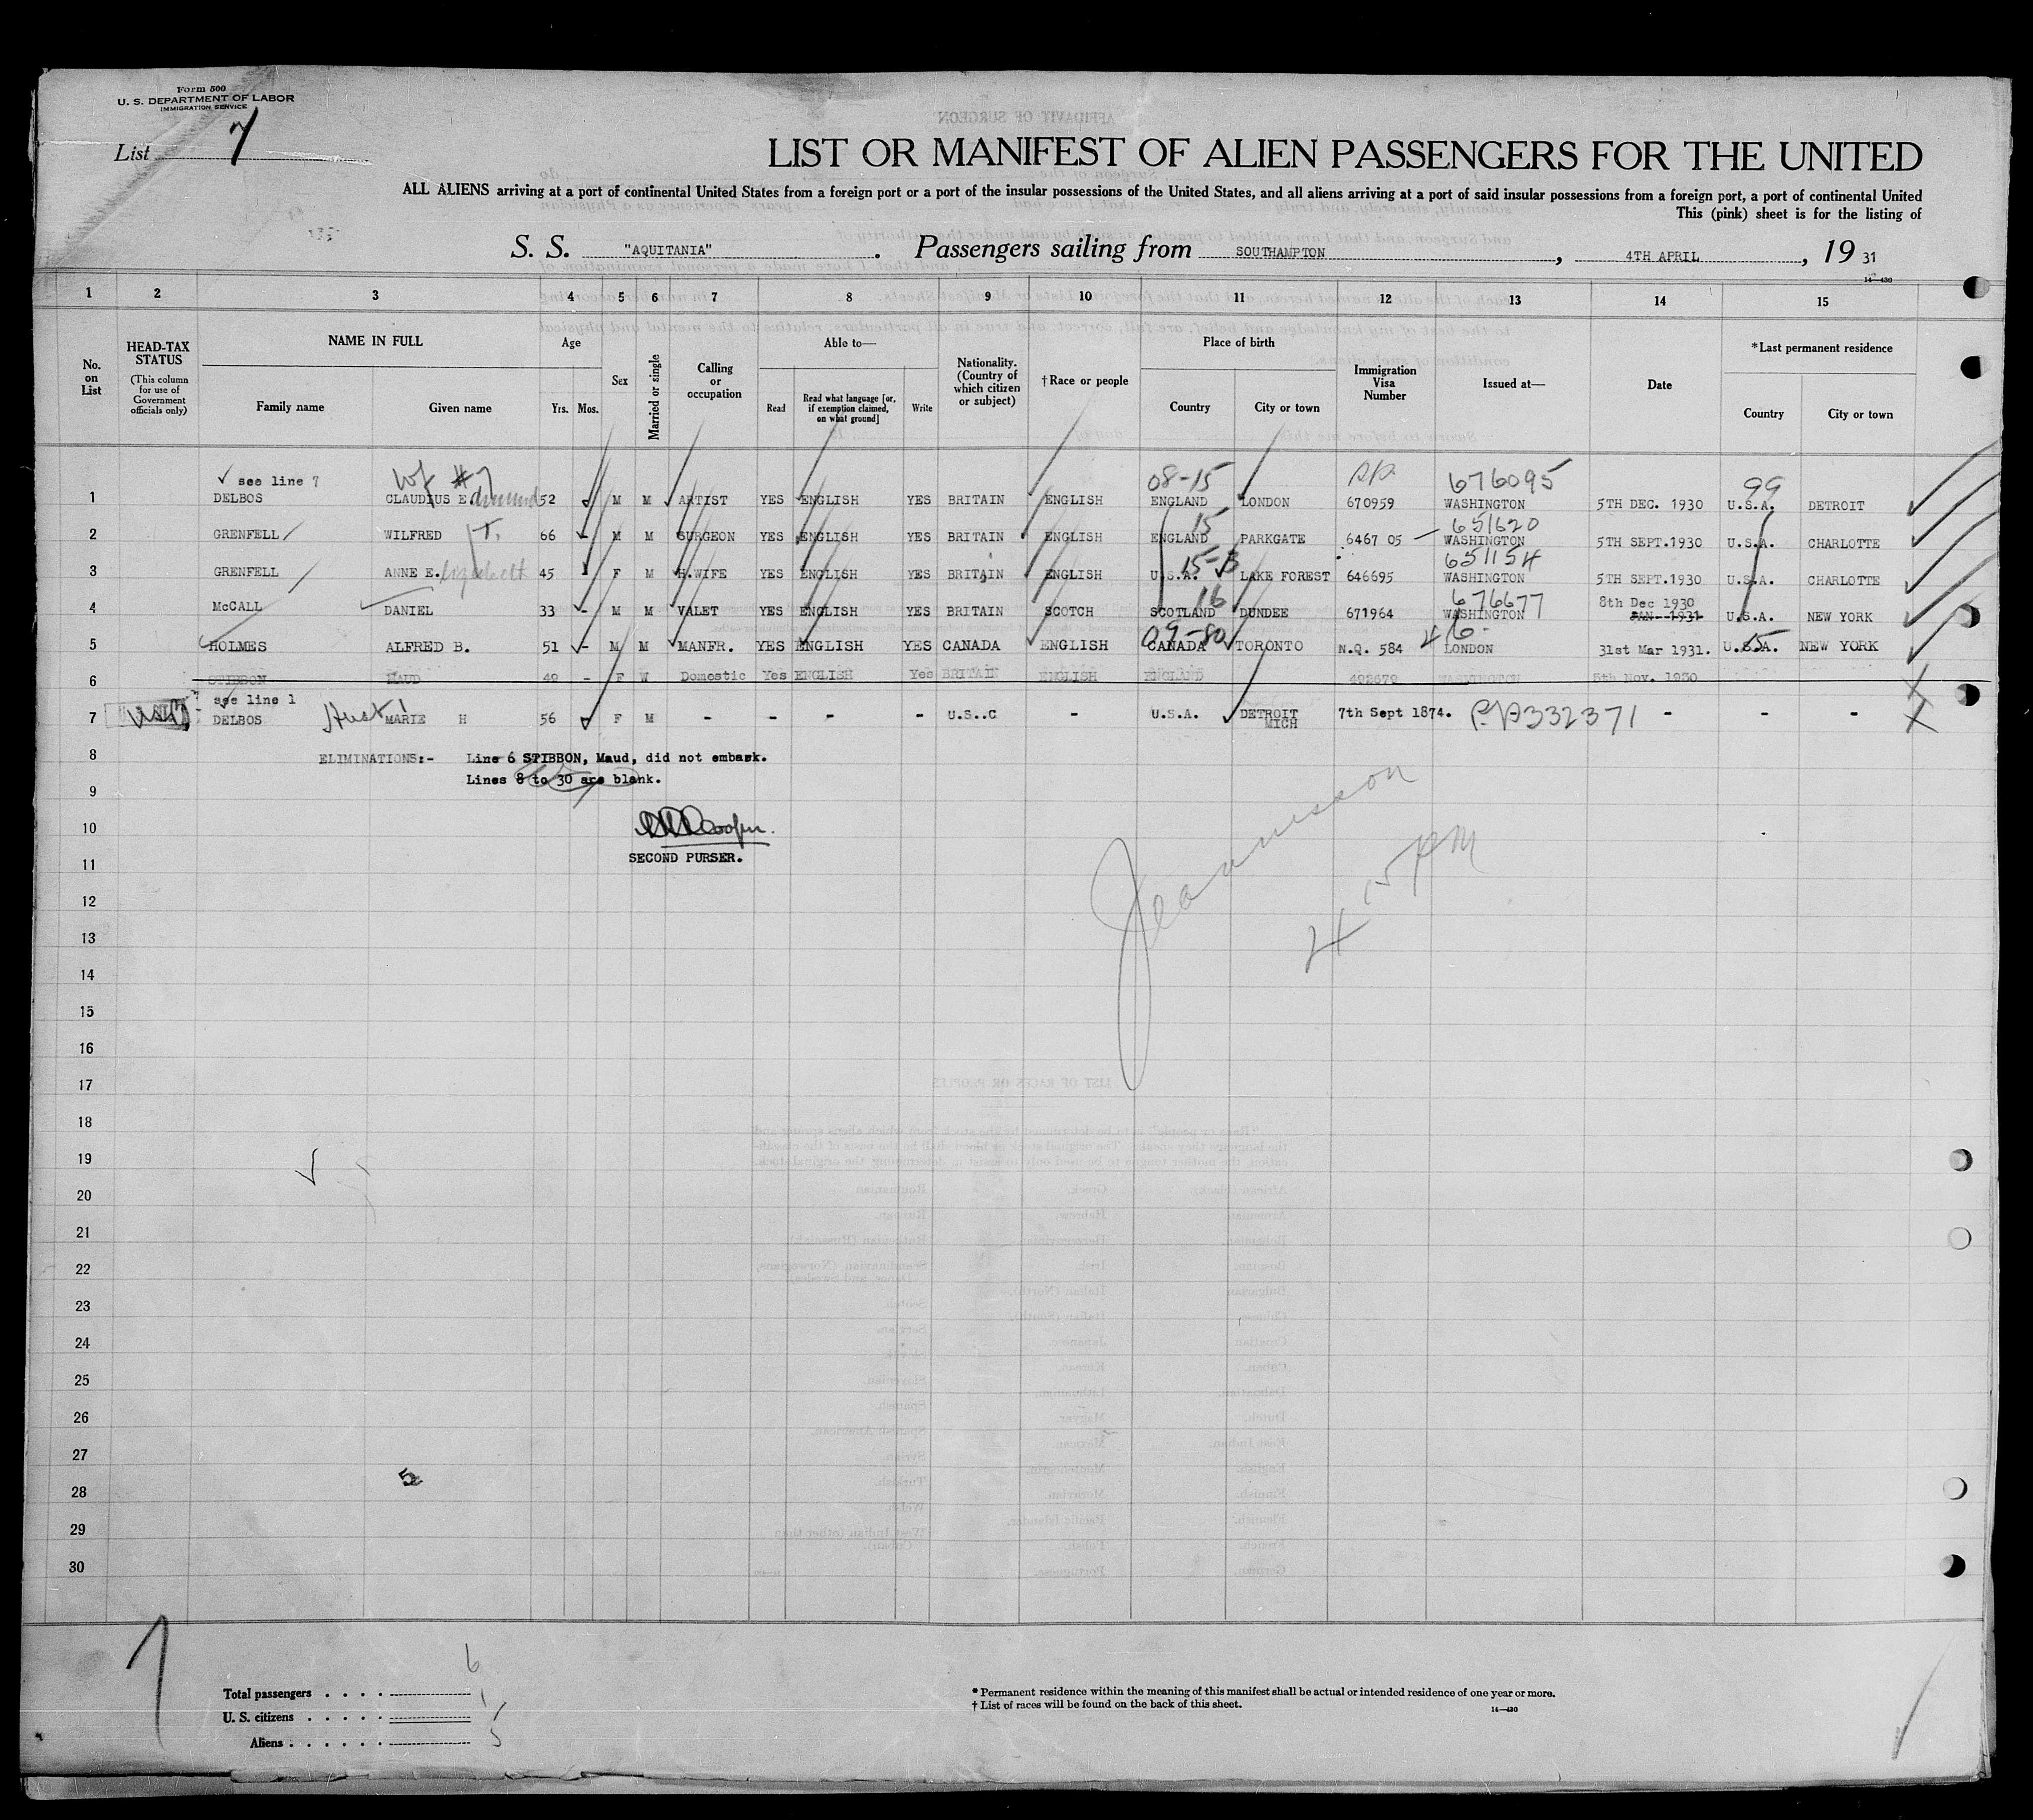 Form 500
U. S. DEPARTMENT OF LABOR
IMMIGRATION SERVICE
List 7
LIST OR MANIFEST OF ALIEN PASSENGERS FOR THE UNITED
ALL ALIENS arriving at a port of continental United States from a foreign port or a port of the insular possessions of the United States, and all aliens arriving at a port of said insular possessions from a foreign port, a port of continental United
This (pink) sheet is for the listing of
S. S. "AQUITANIA". Passengers sailing from SOUTHAMPTON, 4TH APRIL, 19 31
14—430
1 2 3 4 5 6 7 8 9 10 11 12 13 14 15
No. on List
HEAD-TAX STATUS
(This column for use of Government officials only)
NAME IN FULL
Family name
Given name
Age
Yrs. Mos.
Sex
Married or single
Calling or occupation
Able to—
Read
Read what language [or, if exemption claimed, on what ground]
Write
Nationality. (Country of which citizen or subject)
†Race or people
Place of birth
Country
City or town
Immigration Visa Number
Issued at—
Date
*Last permanent residence
Country
City or town
see line 7 Wf #7 08-15 676095 99
1 DELBOS CLAUDIUS Edmund 52 M M ARTIST YES ENGLISH YES BRITAIN ENGLISH ENGLAND LONDON 670959 WASHINGTON 5TH DEC. 1930 U.S.A. DETROIT
15 651620
2 GRENFELL WILFRED T. 66 - M M SURGEON YES ENGLISH YES BRITAIN ENGLISH ENGLAND PARKGATE 6467 05 WASHINGTON 5TH SEPT.1930 U.S.A. CHARLOTTE
15 651154
3 GRENFELL ANNE E.lizabeth 45 F M H.WIFE YES ENGLISH YES BRITAIN ENGLISH U.S.A. LAKE FOREST 646695 WASHINGTON 5TH SEPT.1930 U.S.A. CHARLOTTE
16 676677 8th Dec 1930
4 McCALL DANIEL 33 - M M VALET YES ENGLISH YES BRITAIN SCOTCH SCOTLAND DUNDEE 671964 WASHINGTON JAN 1931 U.S.A. NEW YORK
09-80 46.
5 HOLMES ALFRED B. 51 - M M MANFR. YES ENGLISH YES CANADA ENGLISH CANADA TORONTO N.Q. 584 LONDON 31st Mar 1931. U.S.A. NEW YORK
6 STIBBON MAUD 49 - F W Domestic Yes ENGLISH Yes BRITAIN ENGLISH ENGLAND 492679 WASHINGTON 5th Nov. 1930
see line 1
7 DELBOS MARIE H 56 F M - - - - U.S..C - U.S.A. DETROIT MICH 7th Sept 1874. P.P.332371 - - -
8 ELIMINATIONS:- Line 6 STIBBON, Maud, did not embark.
Lines 8 to 30 are blank.
9
10 Cooper.
11 SECOND PURSER.
Jeannesson
4 15 PM
12
13
14
15
16
17
18
19
20
21
22
23
24
25
26
27
5
28
29
30
6
Total passengers . . . .
1
U. S. citizens . . . . .
Aliens . . . . . . 5
* Permanent residence within the meaning of this manifest shall be actual or intended residence of one year or more.
† List of races will be found on the back of this sheet.
14—430